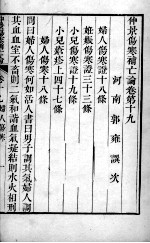 仲景傷寒補亡論卷第十九
河南郭雍譔次
婦人傷寒證十八條
姙娠傷寒證三十三條
小兒瘡疹上四十七條
婦人傷寒十八條
問曰婦人傷寒何如活人書曰男子調其氣婦人調
其血血室不蓄則二氣和諧血氣凝結則水火相刑